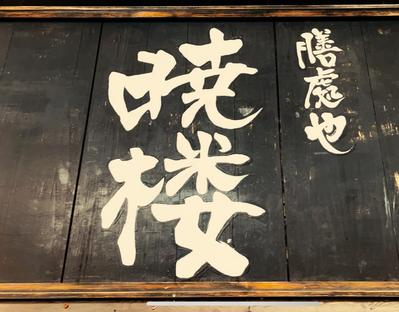 膳處也
暁楼